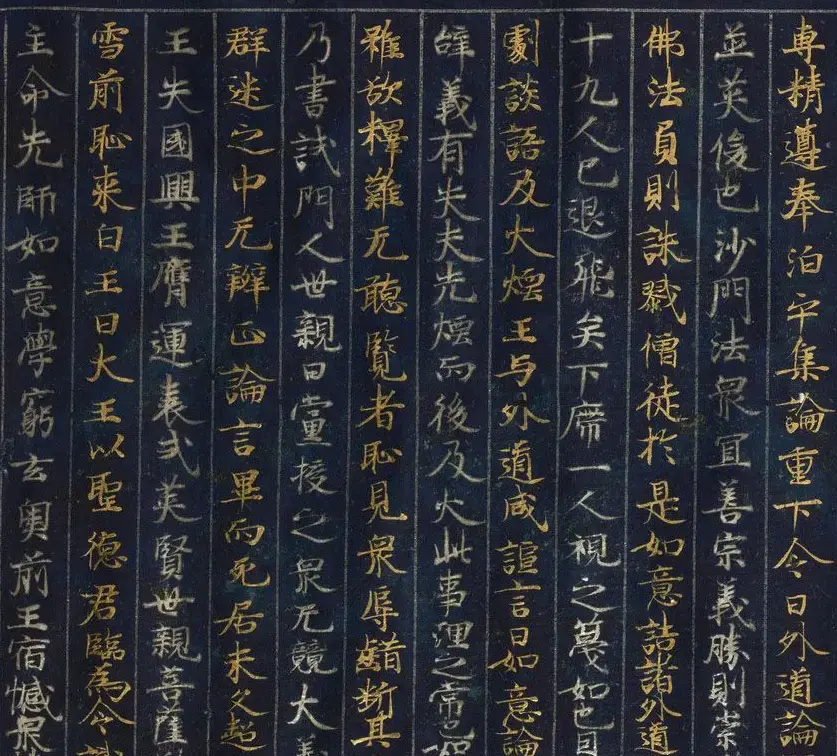 專精遵奉洎乎集論重下令曰外道論
並英俊也沙門法衆冝善宗義勝則崇
佛法負則誅戮僧徒於是如意詰諸外道
十九人已退飛矣下席一人視之蔑如也
劇談語及火煙王与外道咸諠言曰如意論
辝義有失夫先煙而後及火此事理之常也
雖欲釋難无聽覽者恥見衆辱齰斷其
乃書試門人世親曰黨援之衆无競大義
群迷之中无辯正論言畢而死居未久超
王失國興王膺運表式英賢世親菩薩
雪前恥來白王曰大王以聖德君臨為含
主命先師如意學窮玄奧前王宿憾衆